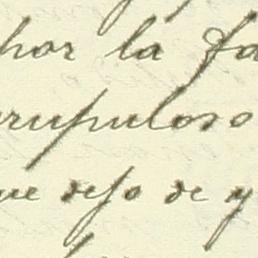 por la fa
crupuloso
que dejo de y